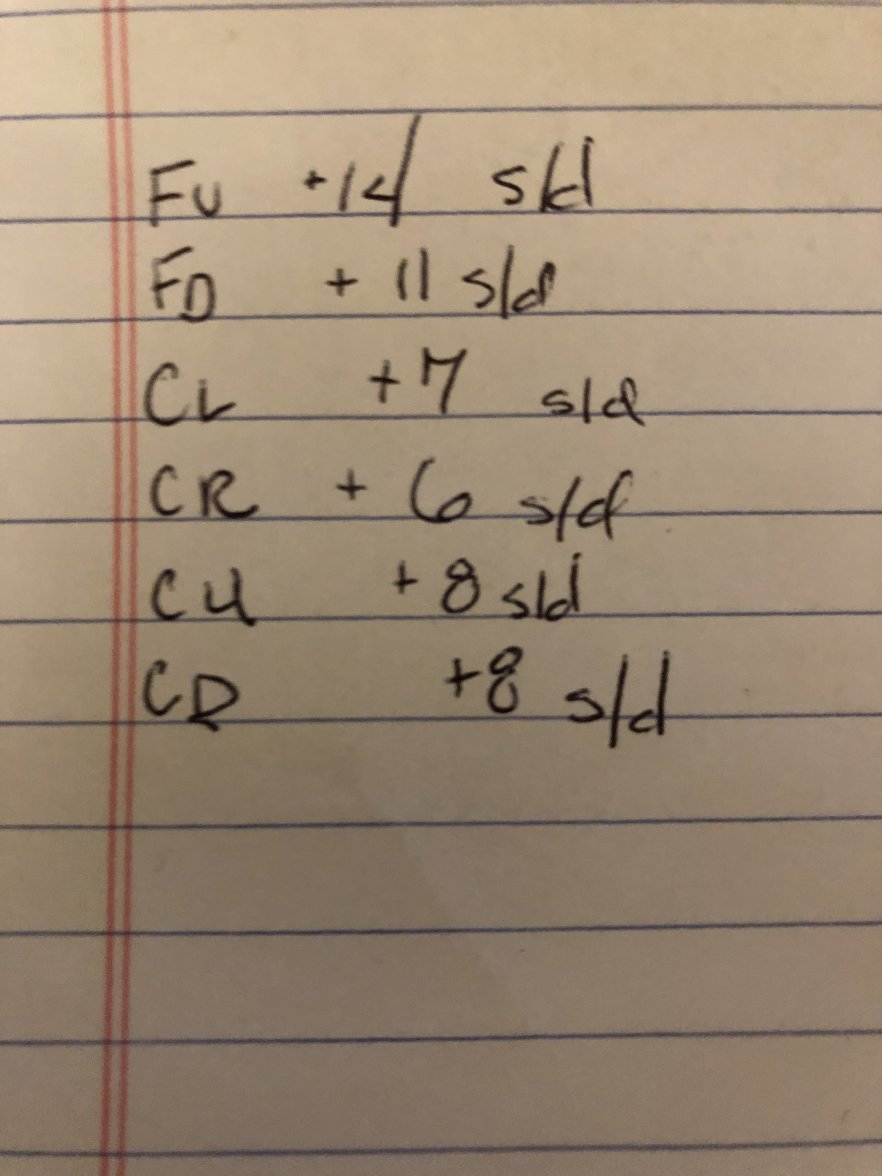 FU +14 s/d
FD + 11 s/d
CL +7 s/d
CR + 6 s/d
CU +8 s/d
CD +8 s/d